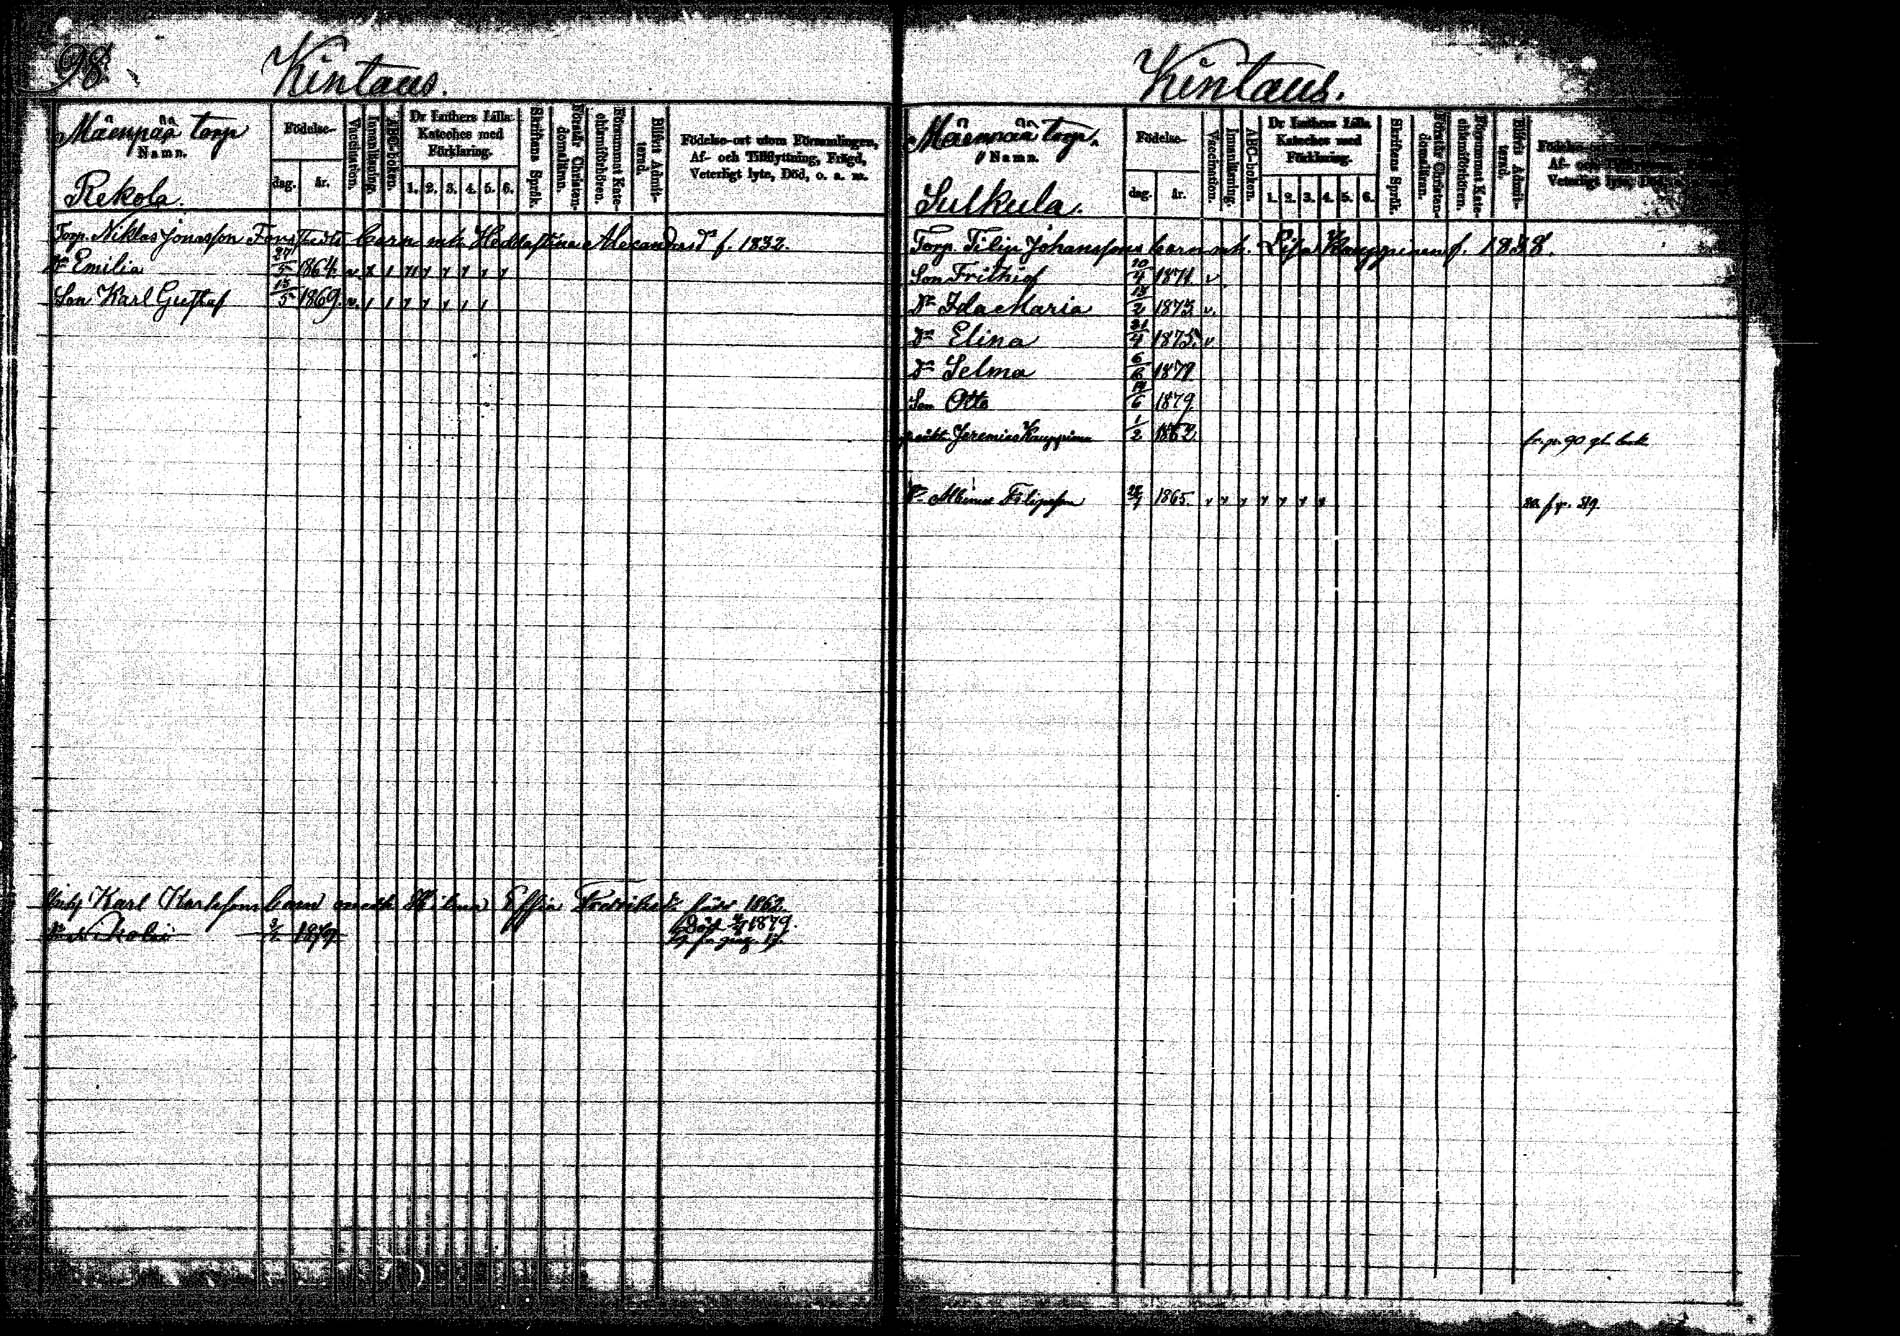 98
Kintaus.
Mäenpää torp
Namn.
Rekola.
Födelse-
dag.
år.
Vaccination.
Innanläsning.
ABC-boken.
Dr Luthers Lilla
Kateches med
Förklaring.
1. 2. 3. 4. 5. 6.
Skriftens Språk.
Förstår Christen-
domsläran.
Försummat Kate-
chismiförhören.
Blifvit Admit-
terad.
Födelse-ort utom Församlingen,
Af- och Tillflyttning, Frägd,
Veterligt lyte, Död, o. s. m.
Torp. Niklas Jonasson Forstedts barn mh. Hedda Stina Alexandersdr f. 1832.
Dr Emilia 27/5 1864. v x 1 x1 x x x x x
Son Karl Gustaf 15/5 1869. v. 1 1 x x x 1 1
Karl Karlsson barn med h. Hilma Fredriksdr född 1862
Dr Nikolai 3/2 1879 Död 4/4 1879.
Kintaus.
Mäenpää torp.
Namn.
Sulkula.
Födelse-
dag.
år.
Vaccination.
Innanläsning.
ABC-boken.
Dr Luthers Lilla
Kateches med
Förklaring.
1. 2. 3. 4. 5. 6.
Skriftens Språk.
Förstår Christen-
domsläran.
Försummat Kate-
chismiförhören.
Blifvit Admit-
terad.
Födelse-ort
Af- och
Veterligt lyte, Död
Torp. Filip Johanssons barn mh. Lisa Kauppinen f. 1838.
Son Frithiof 10/4 1871. v
Dr Ida Maria 13/2 1873. v.
Dr Elina 21/4 1875. v
Dr Selma 6/6 1879
Son Otto 14/6 1879
Jeremias Kauppinen 1/2 1862 fr. p. 90 gl. bok
Filipsson 1865. x x x x x x x fr. p. 319.